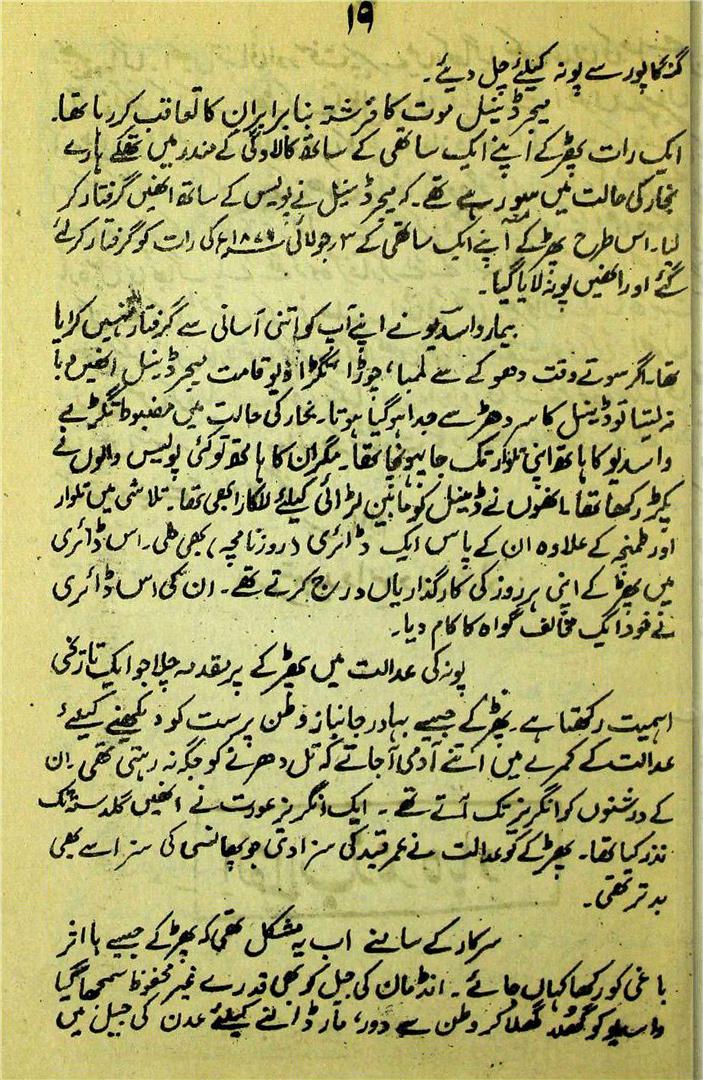 ۱۹
گنگاپور سے پونہ کیلئے چل دیئے۔
میجر ڈینیل موت کا فرشتہ بنا برابر ان کا تعاقب کر رہا تھا۔
ایک رات پھڑکے اپنے ایک ساتھی کے ساتھ کالادگی کے مندر میں تھکے ہارے
بخار کی حالت میں سو رہے تھے۔ کہ میجر ڈینیل نے پولیس کے ساتھ انھیں گرفتار کر
لیا۔ اس طرح پھڑکے اپنے ایک ساتھی کے ۳ جولائی ۱۸۷۹ء کی رات کو گرفتار کر لئے
گئے اور انھیں پونہ لایا گیا۔
بیمار واسدیو نے اپنے آپ کو اتنی آسانی سے گرفتار نہیں کرایا
تھا۔ اگر سوتے وقت دھوکے سے لمبا، چوڑا تگڑا دیو قامت میجر ڈینیل انھیں دبا
نہ لیتا تو ڈینیل کا سر دھڑ سے جدا ہو گیا ہوتا۔ بخار کی حالت میں مضبوط تگڑے
واسدیو کا ہاتھ اپنی تلوار تک جا پہونچا تھا۔ مگر ان کا ہاتھ تو کئی پولیس والوں نے
پکڑ رکھا تھا۔ انھوں نے ڈینیل کو مابین لڑائی کیلئے للکارا بھی تھا۔ تلاشی میں تلوار
اور طمنچہ کے علاوہ ان کے پاس ایک ڈائری (روزنامچہ) بھی ملی۔ اس ڈائری
میں پھڑکے اپنی ہر روز کی کارگذاریاں درج کرتے تھے۔ ان کی اس ڈائری
نے خود ایک مخالف گواہ کا کام دیا۔
پونہ کی عدالت میں پھڑکے پر مقدمہ چلا جو ایک تاریخی
اہمیت رکھتا ہے۔ پھڑکے جیسے بہادر جانباز وطن پرست کو دیکھنے کیلئے
عدالت کے کمرے میں اتنے آدمی آ جاتے کہ تل دھرنے کو جگہ نہ رہتی تھی۔ ان
کے درشنوں کو انگریز تک آتے تھے۔ ایک انگریز عورت نے انھیں گلدستہ تک
نذر کیا تھا۔ پھڑکے کو عدالت نے عمر قید کی سزا دی جو پھانسی کی سزا سے بھی
بدتر تھی۔
سرکار کے سامنے اب یہ مشکل تھی کہ پھڑکے جیسے با اثر
باغی کو رکھا کہاں جائے۔ انڈمان کی جیل کو بھی قدرے غیر محفوظ سمجھا گیا
واسدیو کو گھلا گھلا کر وطن سے دور، مار ڈالنے کیلئے عدن کی جیل میں